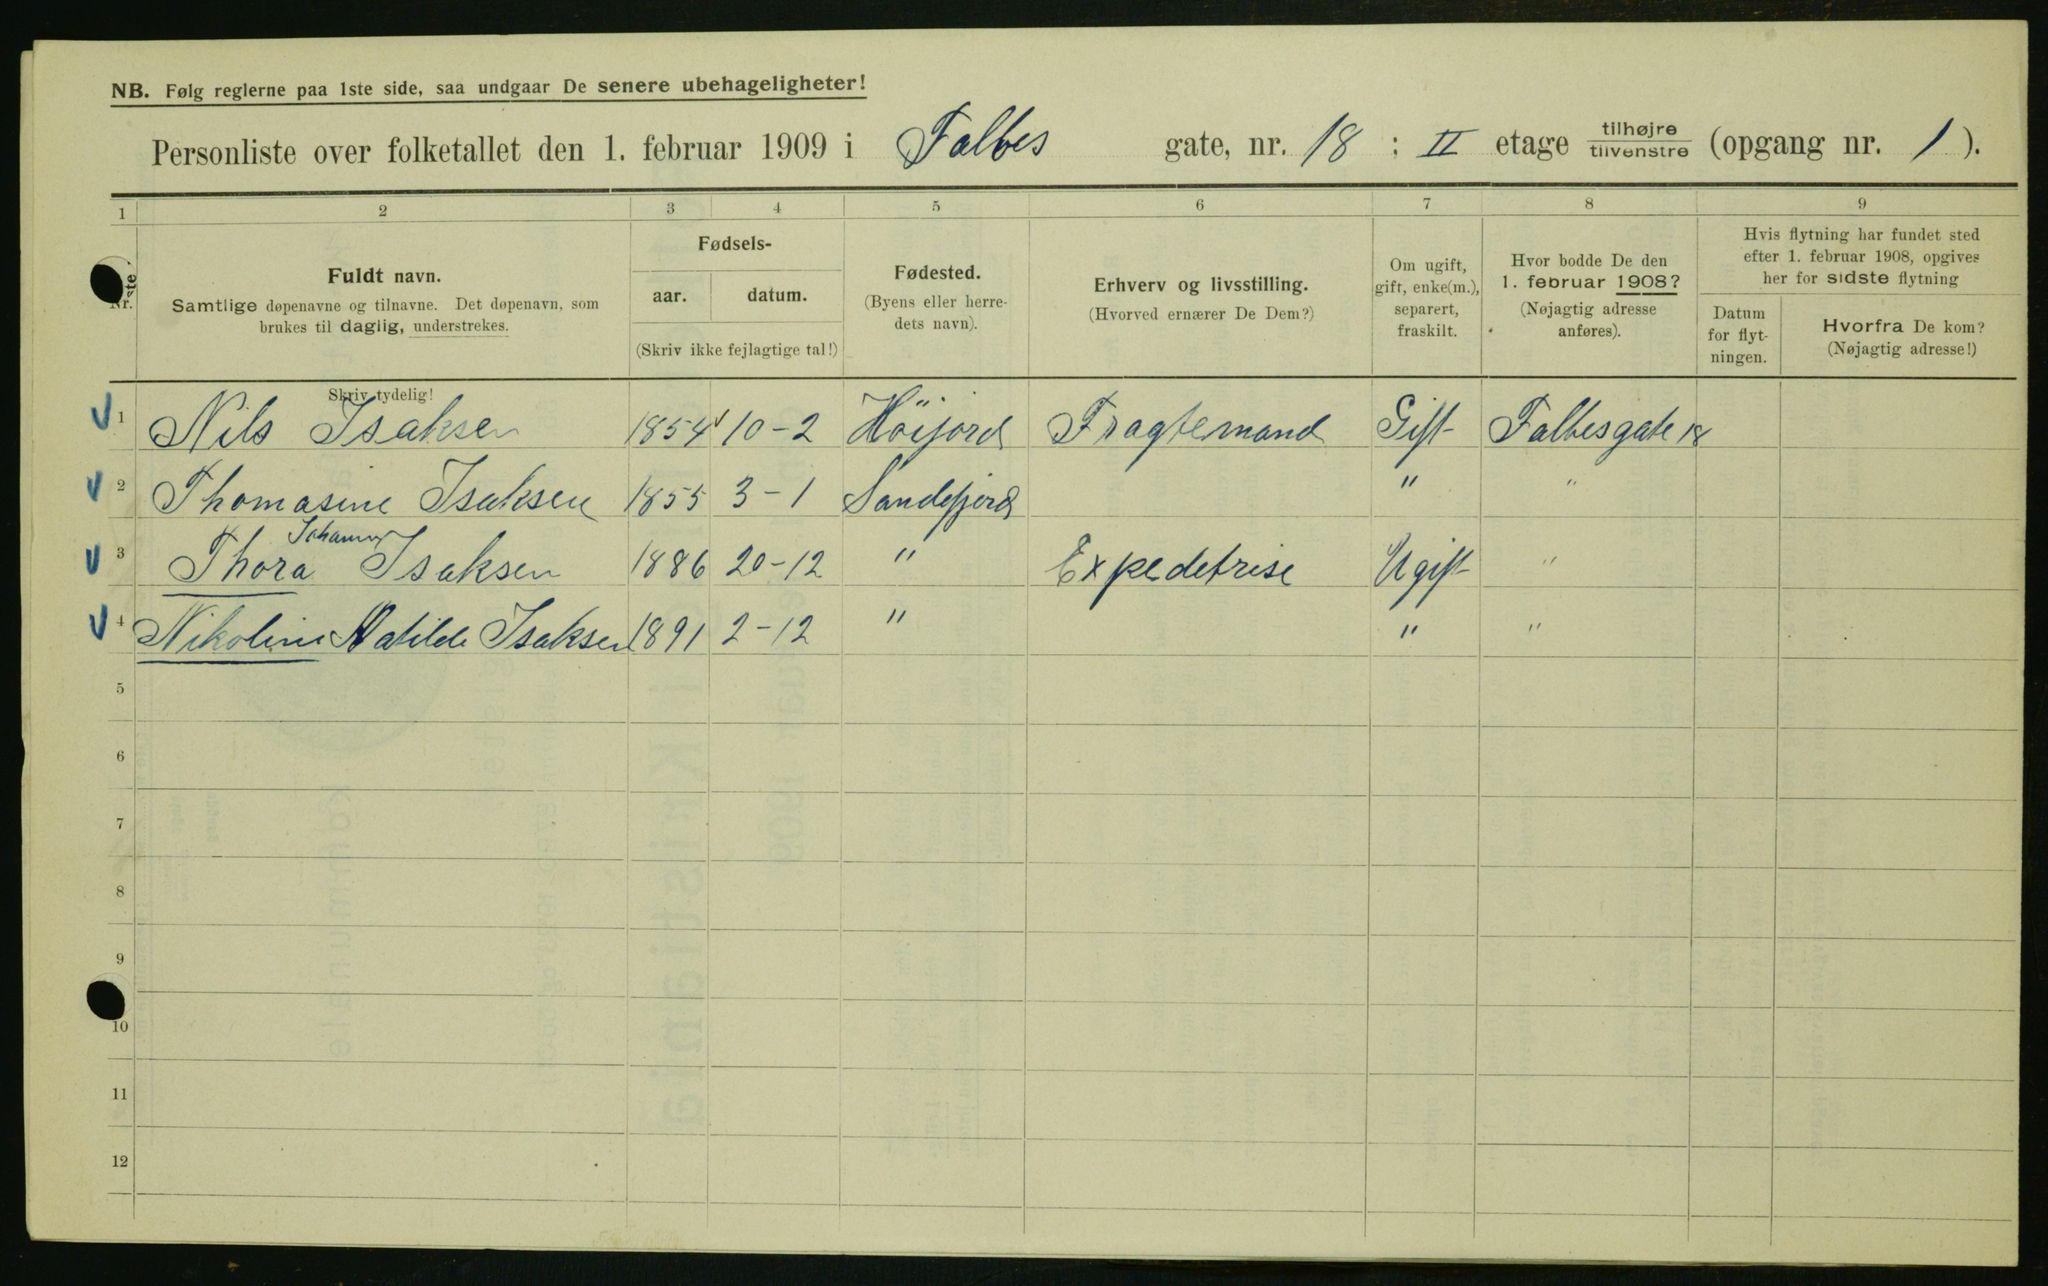 NB. Følg reglerne paa 1ste side, saa undgaar De senere ubehageligheter!
Personliste over folketallet den 1. februar 1909 i Falbes gate, nr. 18 : II etage tilhøjre / tilvenstre (opgang nr. 1 ).
1 2 3 4 5 6 7 8 9
Nr.
Fuldt navn.
Samtlige døpenavne og tilnavne. Det døpenavn, som
brukes til daglig, understrekes.
Fødsels-
aar. datum.
(Skriv ikke fejlagtige tal!)
Fødested.
(Byens eller herre-
dets navn).
Erhverv og livsstilling.
(Hvorved ernærer De Dem?)
Om ugift,
gift, enke(m.),
separert,
fraskilt.
Hvor bodde De den
1. februar 1908?
(Nøjagtig adresse
anføres).
Hvis flytning har fundet sted
efter 1. februar 1908, opgives
her for sidste flytning
Datum
for flyt-
ningen.
Hvorfra De kom?
(Nøjagtig adresse!)
Skriv tydelig!
1 Nils Isaksen 1854 10-2 Höijord Fragtemand Gift Falbesgate 18
2 Thomasine Isaksen 1855 3-1 Sandefjord " "
Johanna
3 Thora Isaksen 1886 20-12 " Expedetrise Ugift "
4 Nikoline Matilde Isaksen 1891 2-12 " " "
5
6
7
8
9
10
11
12